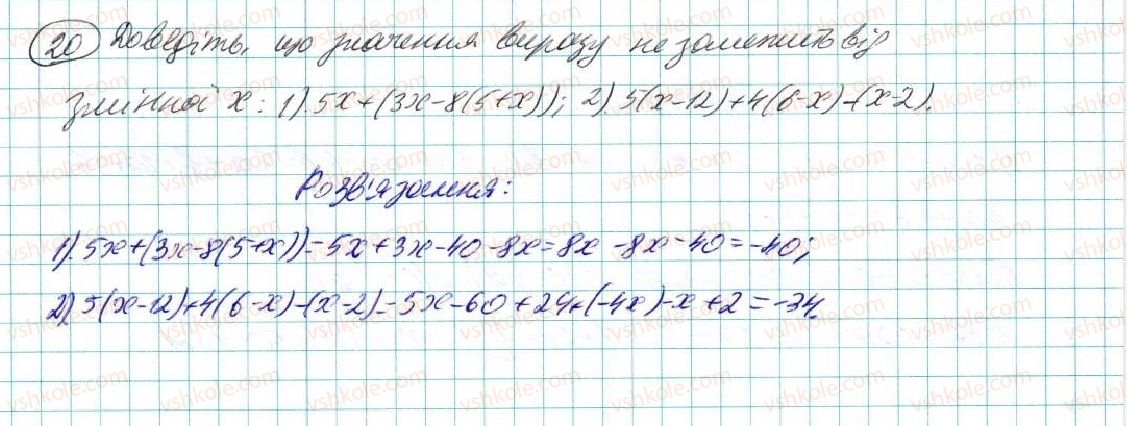 20 Доведіть, що значення виразу не залежить від
змінної x: 1). 5x+(3x-8(5+x)); 2). 5(x-12)+4(6-x)-(x-2).
Розв'язання:
1). 5x+(3x-8(5+x))=5x+3x-40-8x=8x-8x-40=-40;
2) 5(x-12)+4(6-x)-(x-2)=5x-60+24+(-4x)-x+2=-34.